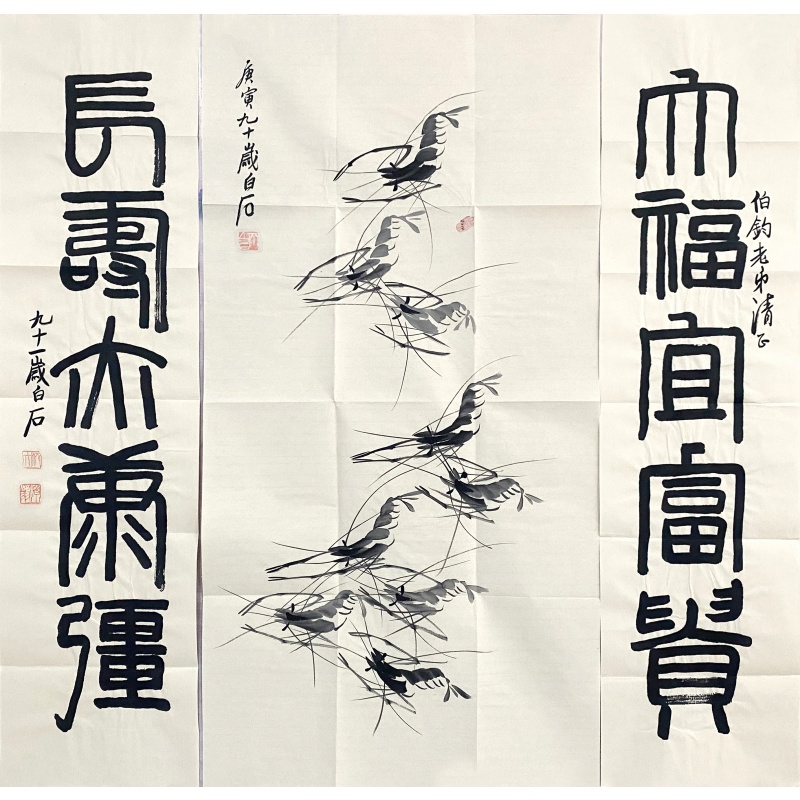 伯鈞老弟清正
大福宜富貴
庚寅九十歲白石
長壽亦康彊
九十一歲白石